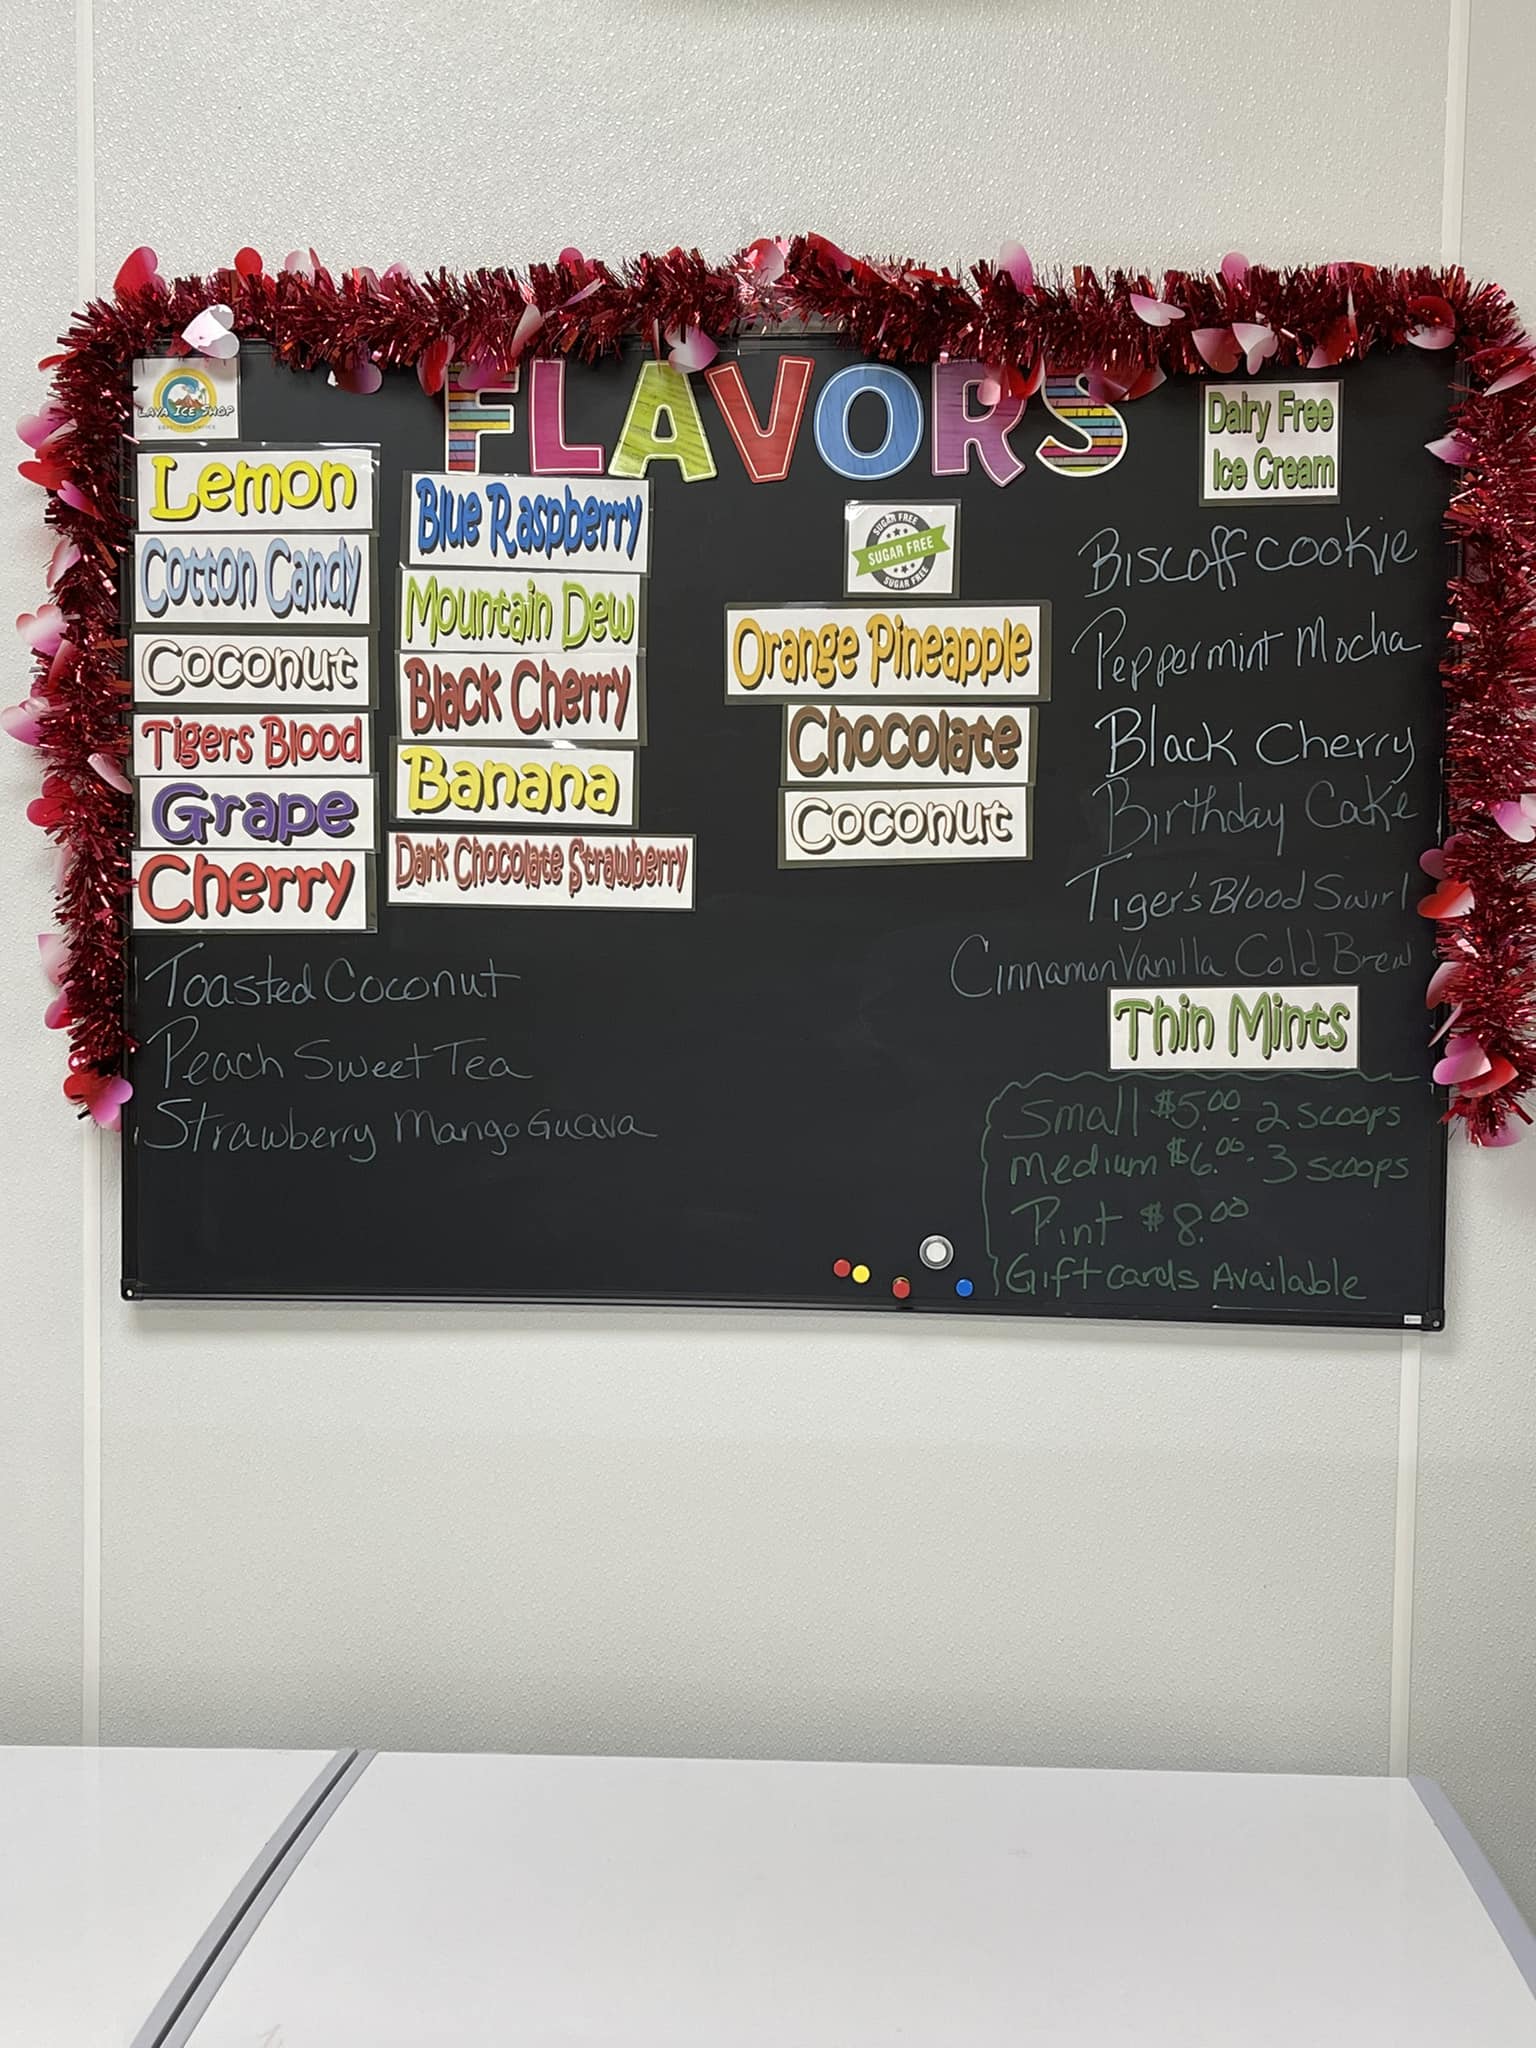 FLAVORS
LAVA ICE SHOP
Lemon
Cotton Candy
Coconut
Tigers Blood
Grape
Cherry
Toasted Coconut
Peach Sweet Tea
Strawberry Mango Guava
Blue Raspberry
Mountain Dew
Black Cherry
Banana
Dark Chocolate Strawberry
SUGAR FREE
SUGAR FREE
SUGAR FREE
Orange Pineapple
Chocolate
Coconut
Dairy Free
Ice Cream
Biscoff cookie
Peppermint Mocha
Black Cherry
Birthday Cake
Tiger's Blood Swirl
Cinnamon Vanilla Cold Brew
Thin Mints
Small $5.00 - 2 scoops
Medium $6.00 - 3 scoops
Pint $8.00
Gift cards Available